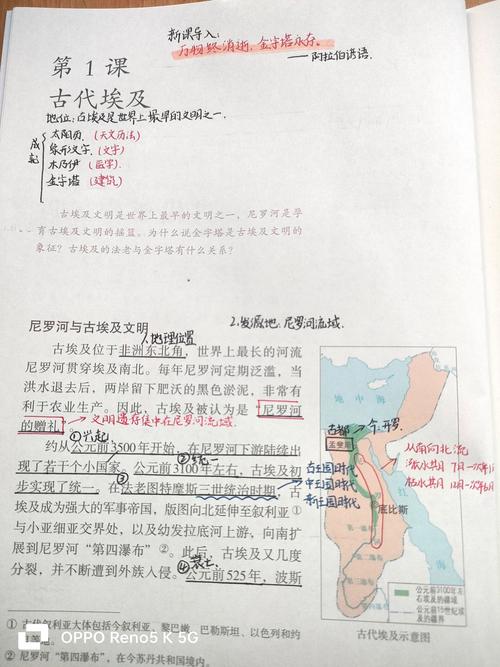 新课导入:
万物终消逝,金字塔永存。
——阿拉伯谚语.
第1课
古代埃及
地位:古埃及是世界上最早的文明之一.
成就
太阳历.(天文历法)
象形文字.(文字)
木乃伊(医学).
金字塔(建筑)
古埃及文明是世界上最早的文明之一,尼罗河是孕
育古埃及文明的摇篮。为什么说金字塔是古埃及文明的
象征?古埃及的法老与金字塔有什么关系?
2.发源地:尼罗河流域.
尼罗河与古埃及文明
1.地理位置
古埃及位于非洲东北角,世界上最长的河流
尼罗河贯穿埃及南北。每年尼罗河定期泛滥,当
洪水退去后,两岸留下肥沃的黑色淤泥,非常有
利于农业生产。因此,古埃及被认为是“尼罗河
的赠礼”。
→文明遗存集中在尼罗河流域.
①兴起
约从公元前3500年开始,在尼罗河下游陆续出
②统一
现了若干个小国家。公元前3100年左右,古埃及初
③
步实现了统一。在法老图特摩斯三世统治时期,古
埃及成为强大的军事帝国,版图向北延伸至叙利亚①
与小亚细亚交界处,以及幼发拉底河上游,向南扩
展到尼罗河“第四瀑布”②。此后,古埃及又几度
④衰亡:
分裂,并不断遭到外族入侵。公元前525年,波斯
地中海
古都→今:开罗.
孟斐斯
从南向北流
古王国时代
中王国时代
新王国时代
底比斯
红
海
第一瀑布
第二瀑布
第三瀑布
第四瀑布
公元前3100年左
右埃及的疆域
公元前15世纪埃
及的疆域
古代埃及示意图
① 古代叙利亚大体包括今叙利亚、黎巴嫩、巴勒斯坦、以色列和约
旦等地。
② 尼罗河“第四瀑布”,在今苏丹共和国境内。
OPPO Reno5 K 5G